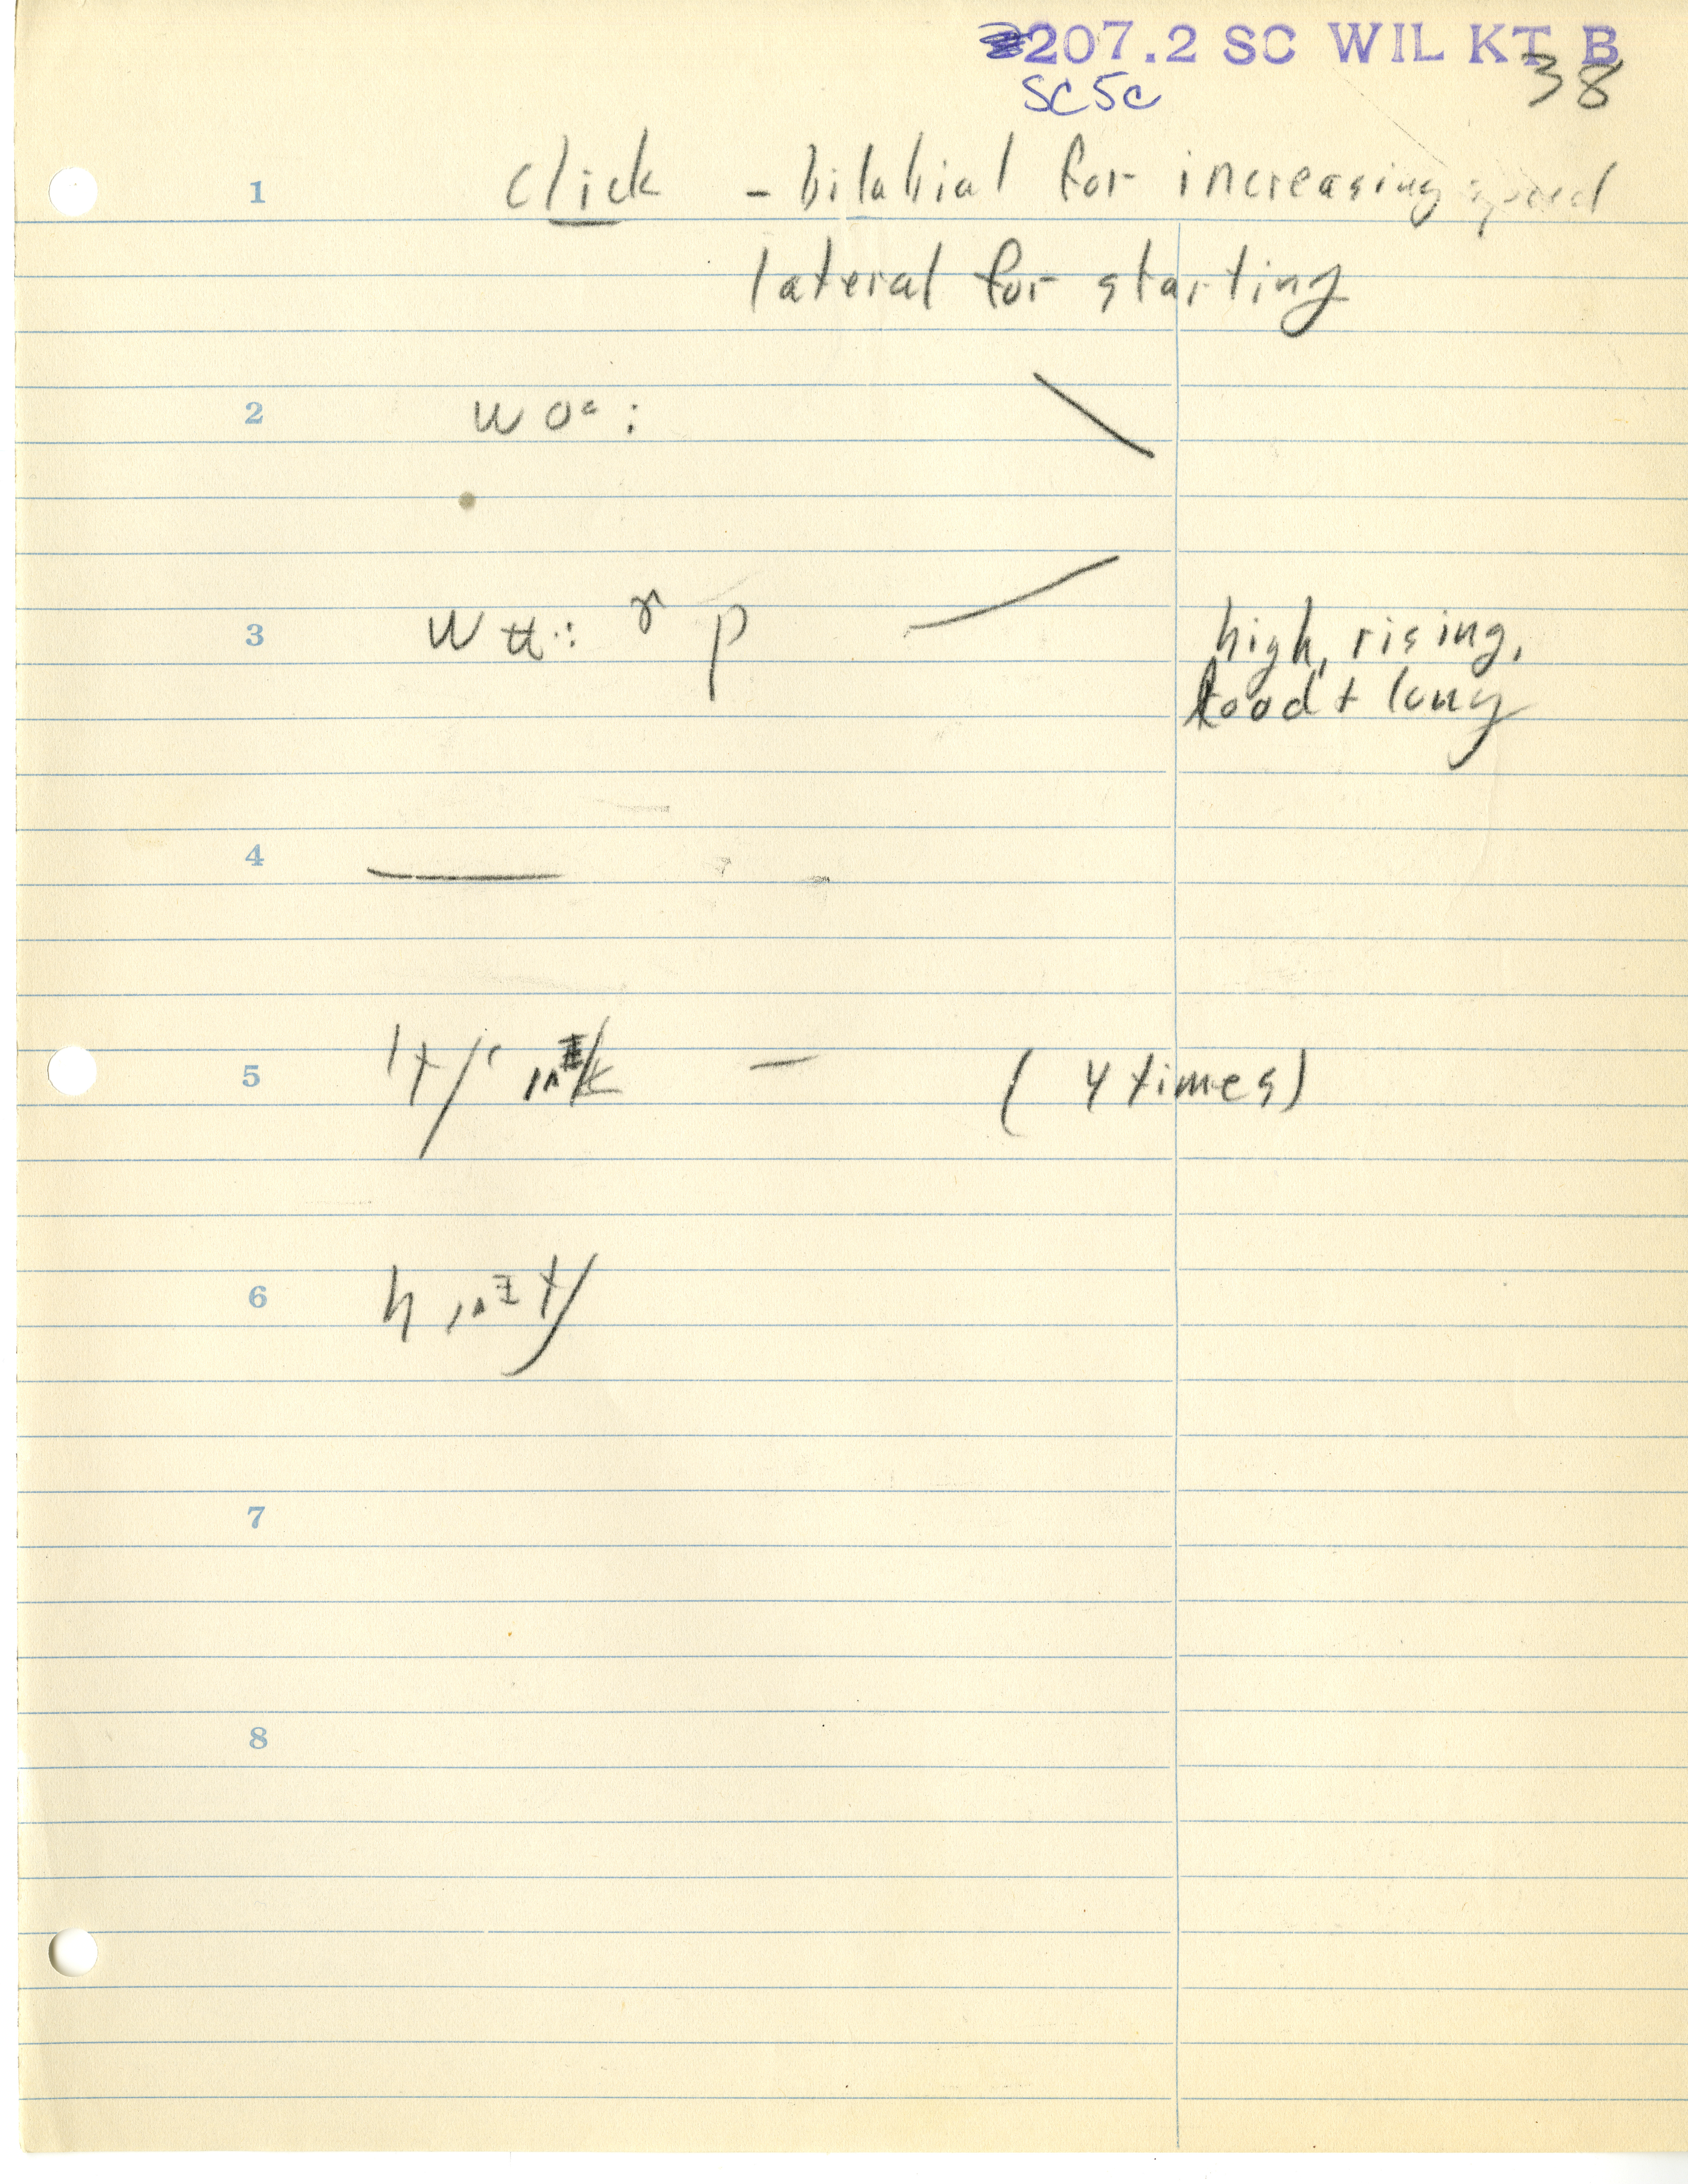 207.2 SC WIL KT B
SC5c 38
1 click - bilabial for increasing speed
lateral for starting
2 w oᵊ :
3 w ʉ : ɤ p high, rising,
loud + long
4
5 (4 times)
6
7
8